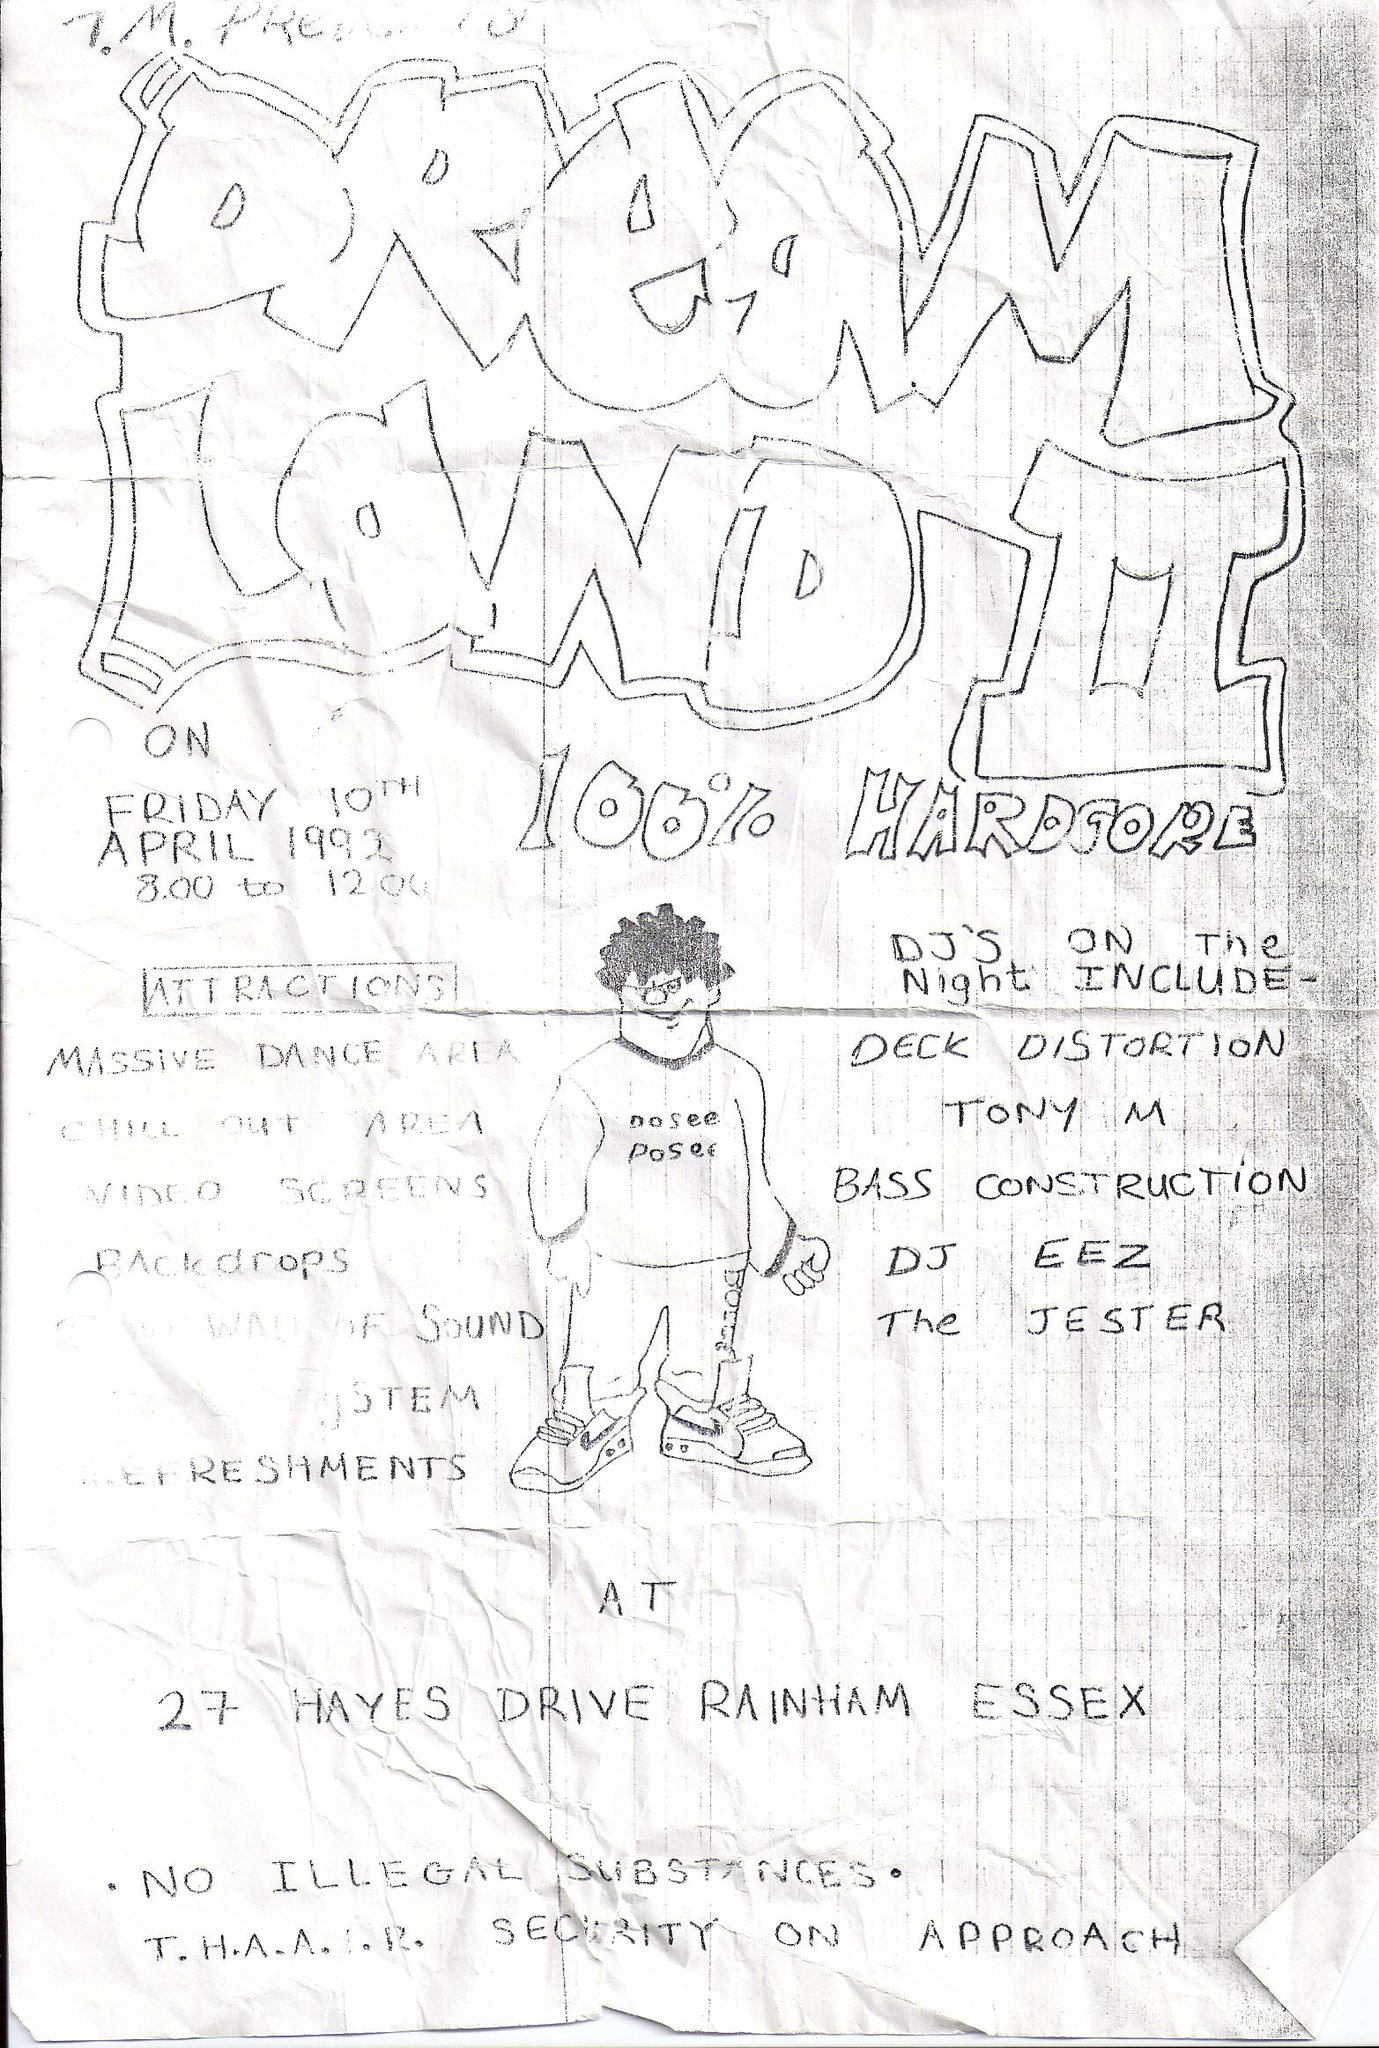 T.M.
DREAM
LAND II
ON
FRIDAY 10TH
APRIL 1992
8.00 to 12
100% HARDCORE
ATTRACTIONS
MASSIVE DANCE AREA
CHILL OUT AREA
VIDEO SCREENS
BACKdrops
WALL OF SOUND
REFRESHMENTS
posee
posee
DJ'S ON The
Night INCLUDE-
DECK DISTORTION
TONY M
BASS CONSTRUCTION
DJ EEZ
The JESTER
AT
27 HAYES DRIVE RAINHAM ESSEX
. NO ILLEGAL SUBSTANCES .
SECURITY ON APPROACH